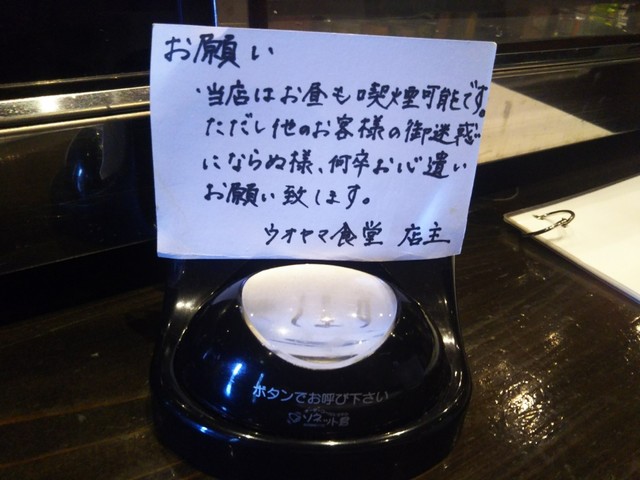 お願い
・当店はお昼も喫煙可能です。
ただし他のお客様の御迷惑
にならぬ様、何卒お心遣い
お願い致します。
ウオヤマ食堂 店主
ボタンでお呼び下さい
ソネット君